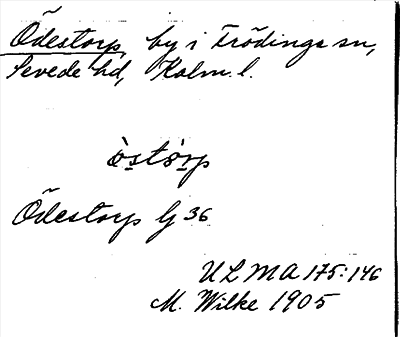 Ödestorp, by i Frödinge sn,
Sevede hd, Kalm. l.
òstòrp
Ödestorp Gj 36
ULMA 175:146
M. Wilke 1905